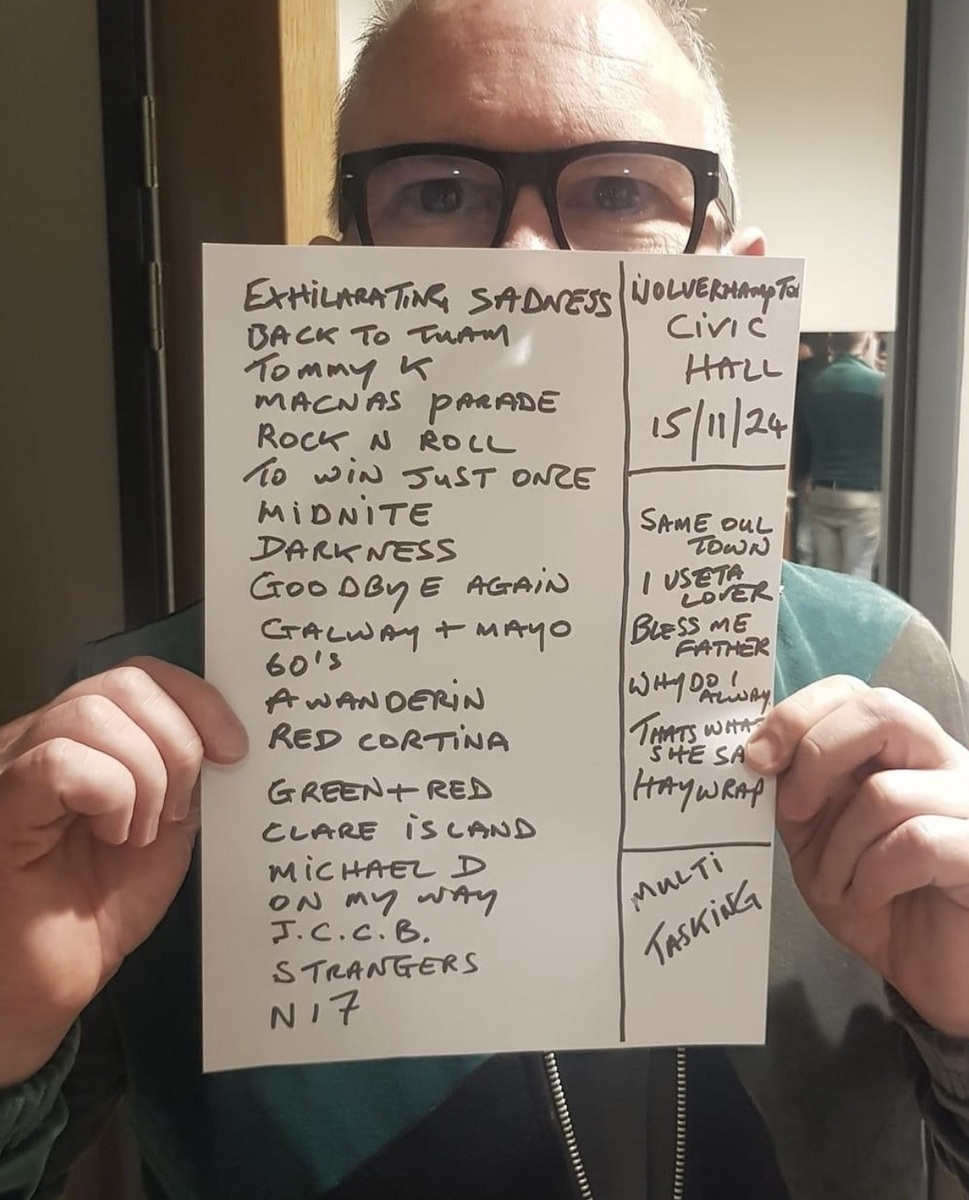 EXHILARATING SADNESS
BACK TO TUAM
TOMMY K
MACNAS PARADE
ROCK N ROLL
TO WIN JUST ONCE
MIDNITE
DARKNESS
GOODBYE AGAIN
GALWAY + MAYO
60'S
A WANDERIN
RED CORTINA
GREEN + RED
CLARE ISLAND
MICHAEL D
ON MY WAY
J.C.C.B.
STRANGERS
N17
WOLVERHAMPTON
CIVIC
HALL
15/11/24
SAME OUL
TOWN
I USETA
LOVER
BLESS ME
FATHER
WHY DO I
ALWAY
THATS WHAT
SHE SA
HAYWRAP
MULTI
TASKING